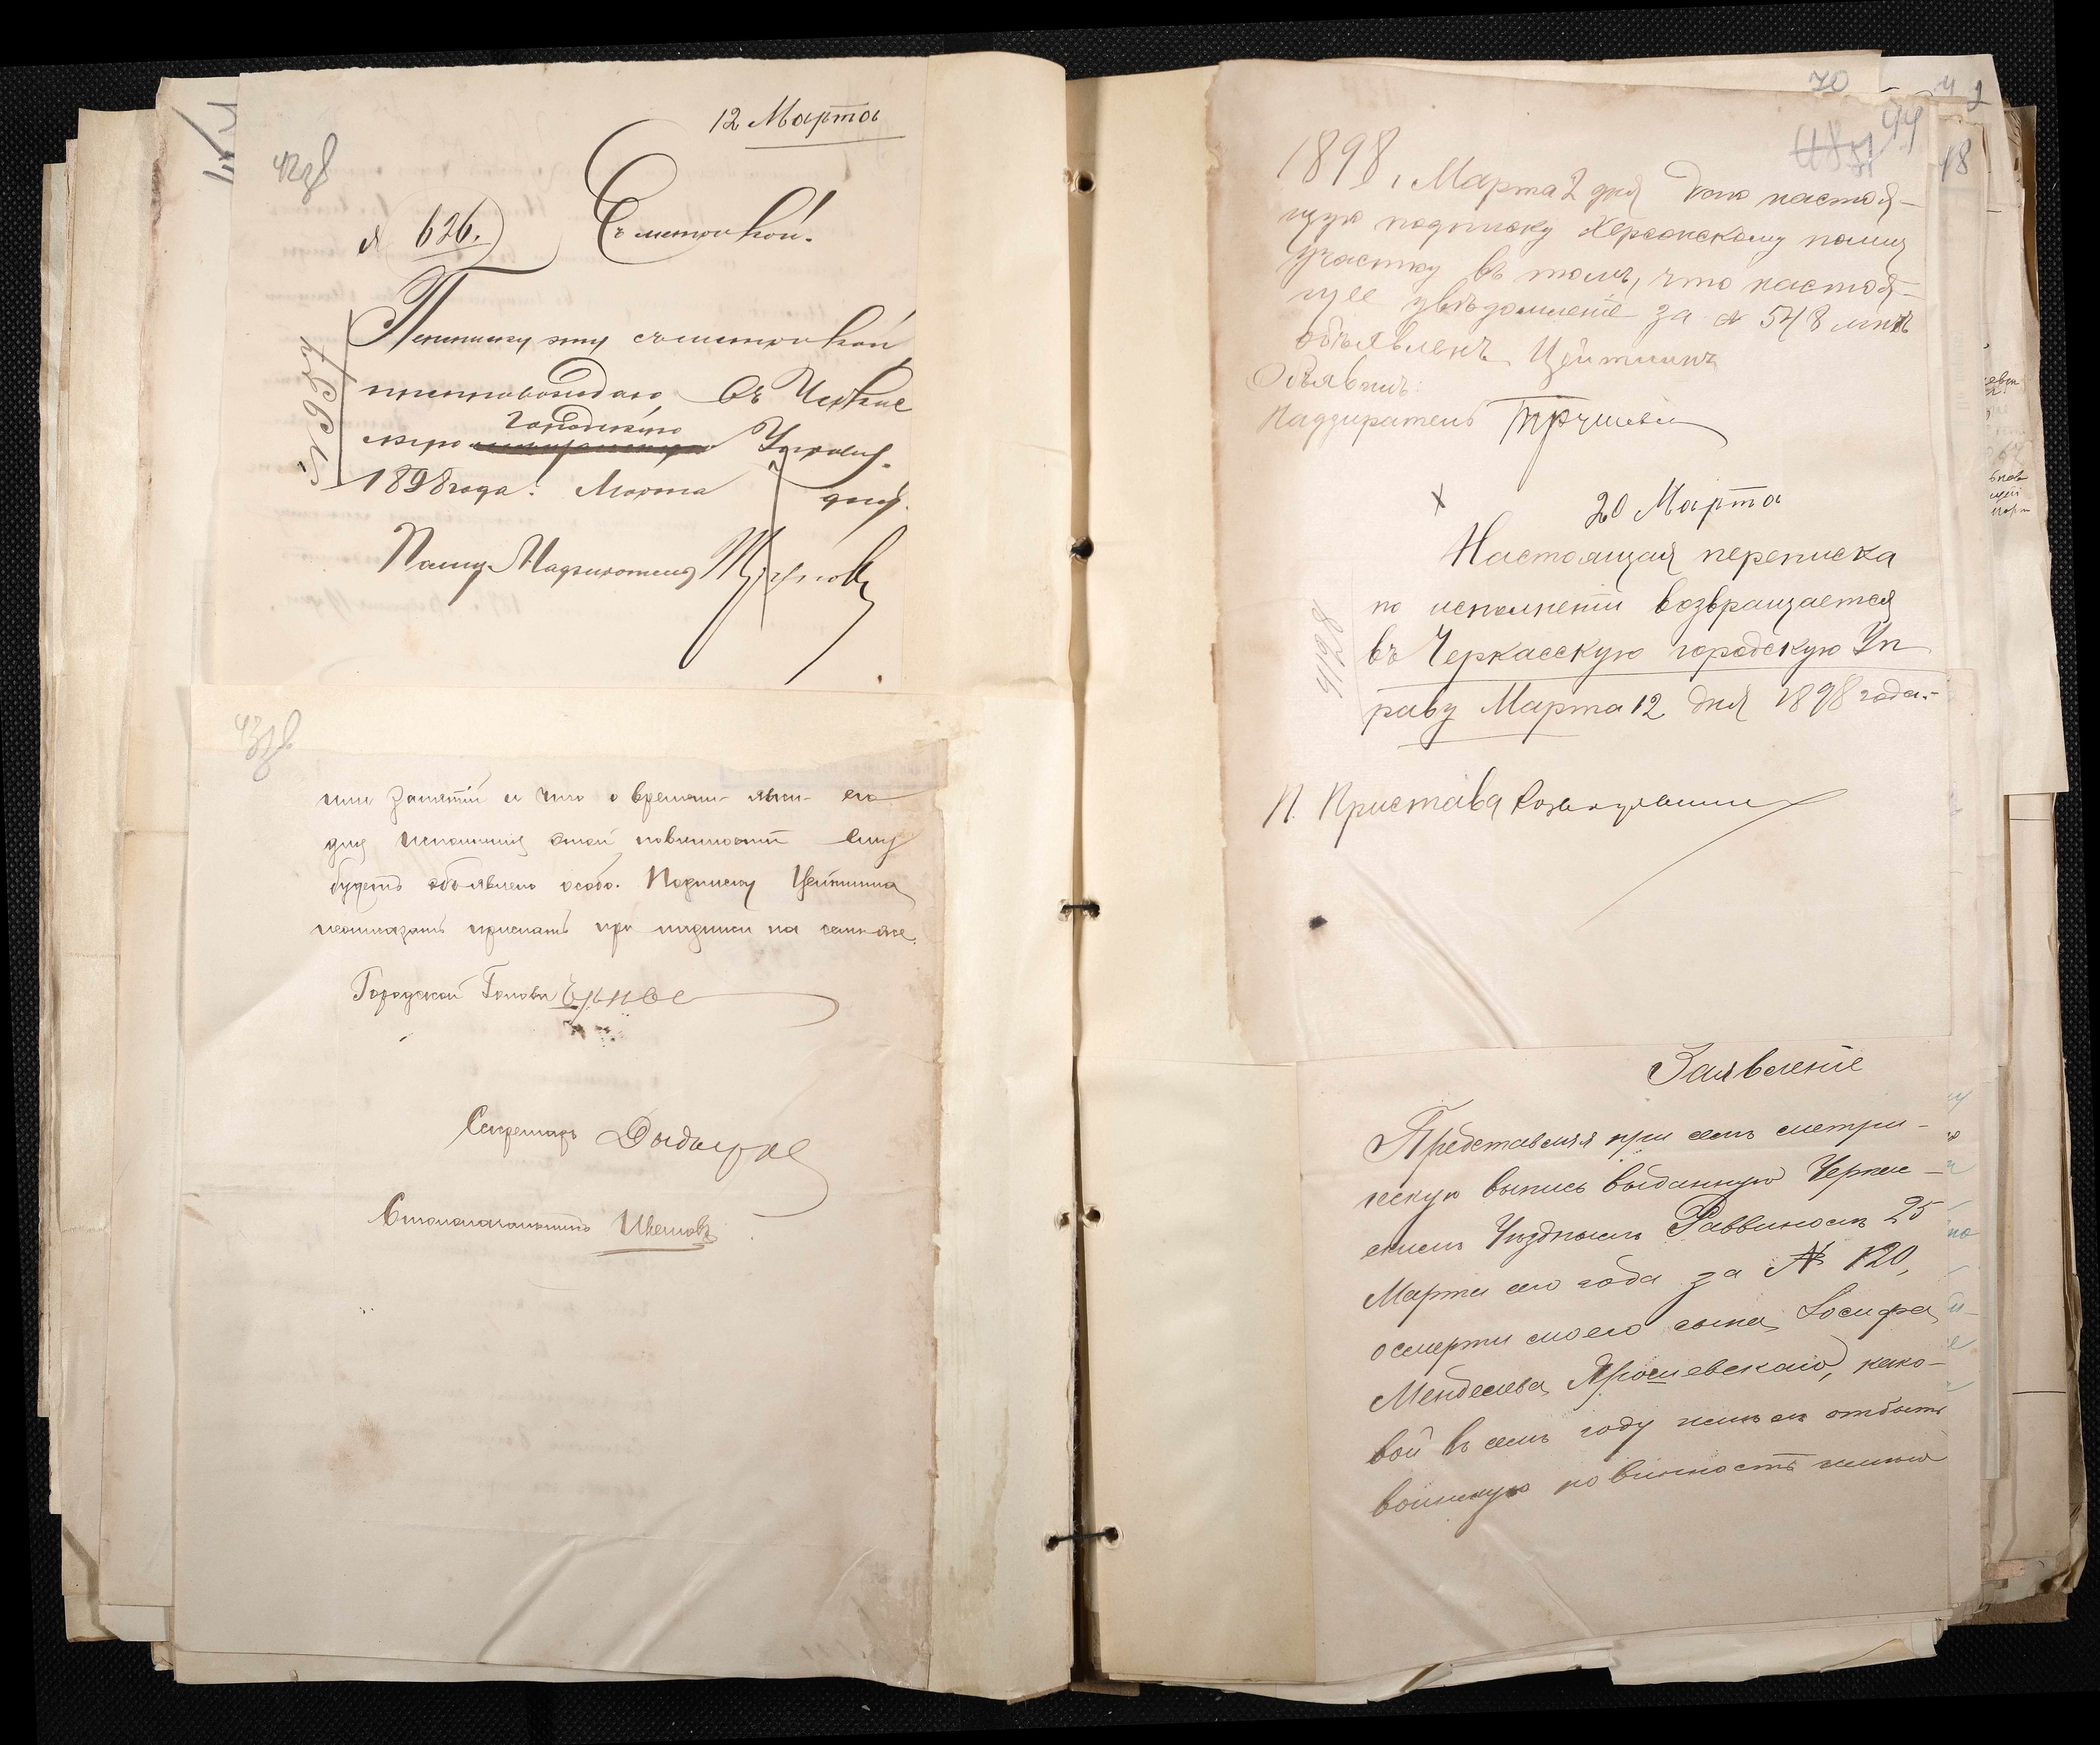 12 Марта
42 об
№ 626.
Съ меткой.
Переписку эту съ меткой
препровождаю въ Черкас
скую Городскую Управу.
1898 года. Марта 7 дня.
№ 957
Полиц. Надзиратель
43 об
ими занятій и что о времени явки его
для исполненія этой повинности ему
будетъ объявлено особо. Подписку Цейтлина
неотказать прислать при надписи на семъ-же.
Городской Голова
Секретарь
Столоначальникъ
70
44
18
1898 г. Марта 2 дня даю настоя-
щую подписку Херсонскому полиц
участку въ томъ, что настоя-
щее увѣдомленіе за № 548 мнѣ
объявленъ Цейтлинъ
Объявилъ:
Надзиратель
20 Марта
Настоящая переписка
по исполненіи возвращается
въ Черкасскую городскую Уп
раву Марта 12 дня 1898 года.-
П. Пристава
Заявленіе
Представляя при семъ метри-
ческую выпись выданную Черкас-
скимъ Уѣзднымъ Раввиномъ 25
Марта сего года за № 120,
о смерти моего сына Іосифа
Менделева Ярошевскаго, како-
вой въ семъ году имѣлъ отбыть
воинскую повинность